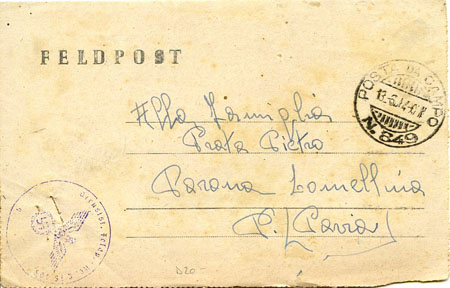 FELDPOST
POSTA DA CAMPO
N. 849
Alla Famiglia
Prata Pietro
Parona Lomellina
P. (Pavia)
D20-